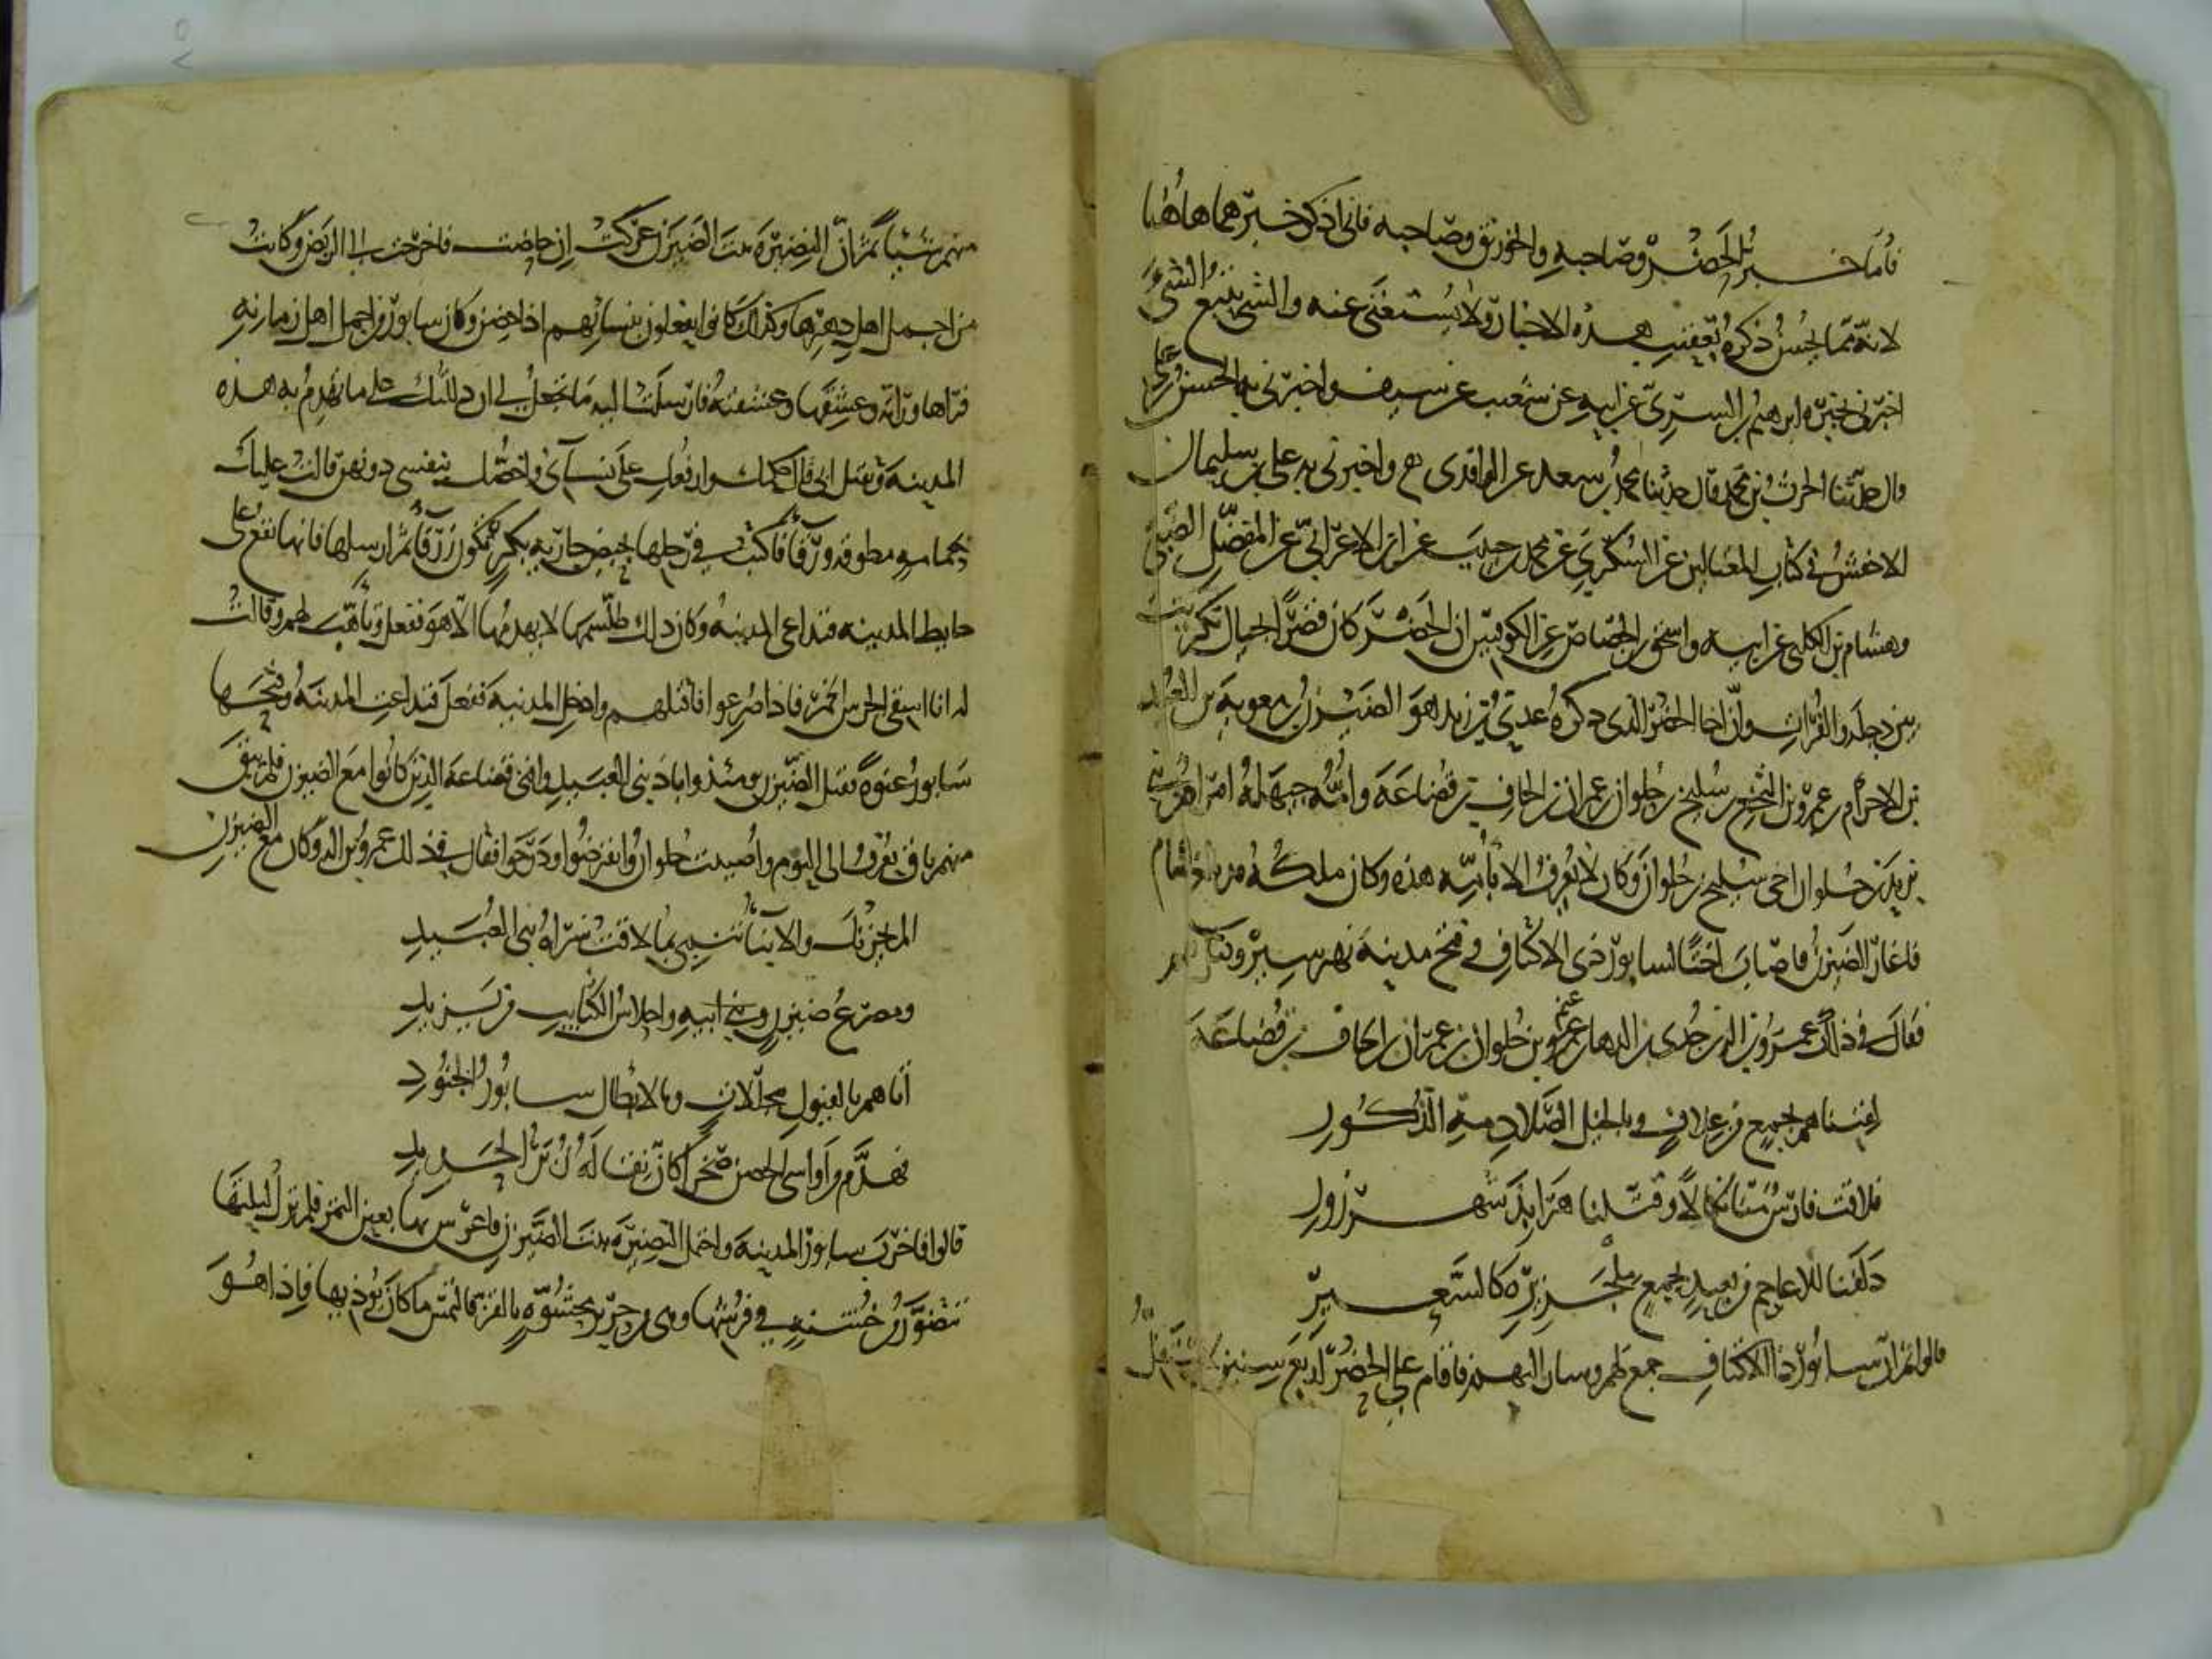 فأما خبر الحضر وصاحبه والخورنق وصاحبه فاني اذكر خبرهما هاهنا
لانه مما يحسن ذكره بعقب هذه الاخبار ولا يستغنى عنه والشي يتبع الشي
اخبرني بخبره ابرهيم بن السري عن ابيه عن شعيب عن سيف واخبرني به الحسن بن علي
قال حدثنا الحرث بن محمد قال حدثنا محمد بن سعد عن الواقدي ح واخبرني به علي بن سليمان
الاخفش في كتاب المغتالين عن السكري عن محمد بن حبيب عن ابن الاعرابي عن المفضل الضبي
وهشام بن الكلبي عن ابيه واسحق بن الجصاص عن الكوفيين ان الحضر كان قصرا بحيال تكريت
بين دجلة والفرات وان اخا الحضر الذي ذكره عدي بن زيد هو الضيزن بن معوية بن العبيد
بن الاحرام بن عمرو بن النخع بن سليح بن حلوان بن عمران بن الحاف بن قضاعة وامه جبهلة امراة من
تزيد بن حلوان اخي سليح بن حلوان وكان لا يعرف الا بأمه هذه وكان ملكه
فاغار الضيزن فاصاب اختا لسابور ذي الاكتاف وفتح مدينة نهرسير
فقال في ذلك عمرو بن اله بن جدي بن الدهاء بن غنم بن حلوان بن عمران بن الحاف بن قضاعة
لقيناهم بجمع من علاف وبالخيل الصلادمة الذكور
فلاقت فارس منا نكالا وقتلنا هرابذ شهرزور
دلفنا للاعاجم من بعيد بجمع ملجزيرة كالسعير
قالوا ثم ان سابور ذا الاكتاف جمع لهم وسار اليهم فاقام على الحضر اربع سنين
منهم شيئا ثم ان النضيرة بنت الضيزن عركت اي حاضت فاخرجت الى الربض وكانت
من اجمل اهل دهرها وكذلك كانوا يفعلون بنسائهم اذا حضن وكان سابور من اجمل اهل زمانه
فراها وراته وعشقها وعشقته فارسلت اليه ما تجعل لي ان دللتك على ما تهدم به هذه
المدينة وتقتل ابي قال حكمك وارفعك على نسائي واخصك بنفسي دونهن قالت عليك
بحمامة مطوقة ورقا فاكتب في رجلها بحيض جارية بكر تكون زرقا ثم ارسلها فانها تقع على
حايط المدينة فتداعى المدينة وكان ذلك طلسمها لا يهدمها الا هو ففعل وتأهب لهم وقالت
له انا اسقي الحرس الخمر فاذا صرعوا فاقتلهم وادخل المدينة ففعل فتداعت المدينة وفتحها
سابور عنوة فقتل الضيزن يومئذ واباد بني العبيد وافنى قضاعة الذين كانوا مع الضيزن فلم يبق
منهم باق يعرف الى اليوم واصيبت حلوان وانقرضوا ودرجوا فقال في ذلك عمرو بن اله وكان مع الضيزن
الم يحزنك والانباء تنمي بما لاقت سراة بني العبيد
ومصرع ضيزن وبني ابيه واحلاس الكتايب من تزيد
أتاهم بالفيول مجللات وبالابطال سابور الجنود
فهدم من اواسي الحصن صخرا كأن ثقاله زبر الحديد
قالوا فاخرب سابور المدينة واحتمل النضيرة بنت الضيزن فاعرس بها بعين التمر فلم تزل ليلتها
تتضور من خشنة في فرشها وهي من حرير محشوة بالقز فالتمس ما كان يؤذيها فاذا هو